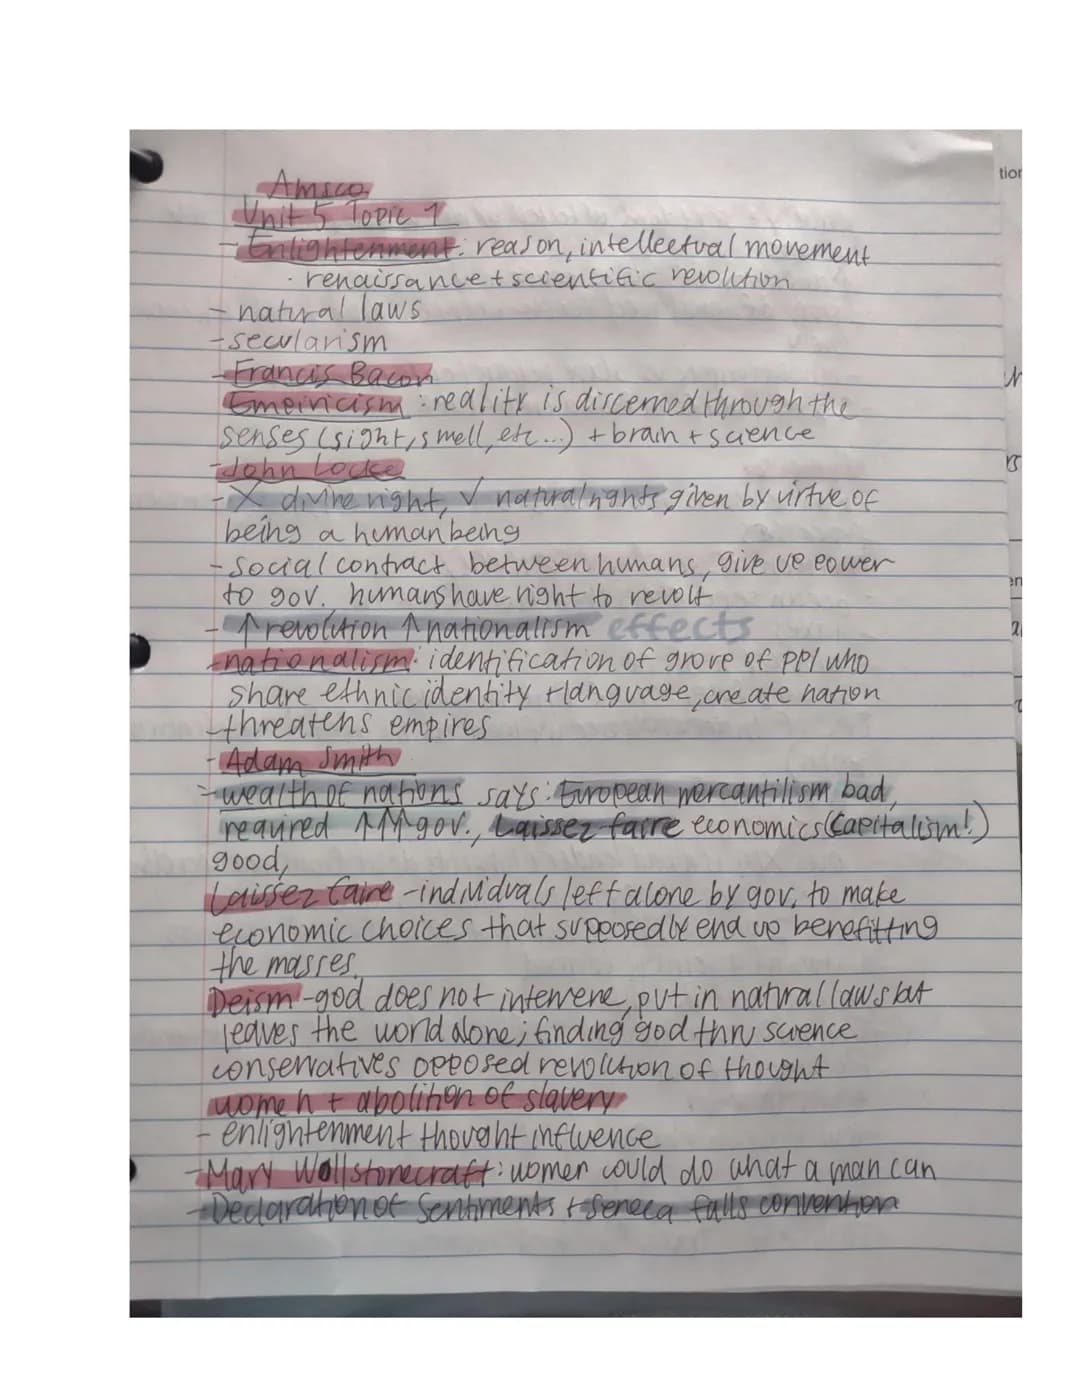 Amsco
Unit 5 Topic 1
- Enlightenment: reason, intellectual movement
· renaissance + scientific revolution
- natural laws
- secularism
- Francis Bacon
Empiricism: reality is discerned through the
senses (sight, smell, etc...) + brain + science
- John Locke
- X divine right, ✓ natural rights given by virtue of
being a human being
- social contract between humans, give up power
to gov. humans have right to revolt
- ↑ revolution ↑ nationalism effects
- nationalism: identification of group of ppl who
share ethnic identity + language, create nation
- threatens empires
- Adam Smith
- wealth of nations says: European mercantilism bad,
required ↑↑↑ gov., Laissez faire economics (Capitalism!)
good,
Laissez faire - individuals left alone by gov. to make
economic choices that supposedly end up benefitting
the masses.
Deism - god does not intervene, put in natural laws but
leaves the world alone; finding god thru science
conservatives opposed revolution of thought
women + abolition of slavery
- enlightenment thought influence
- Mary Wollstonecraft: women could do what a man can
- Declaration of Sentiments + Seneca falls convention
tion